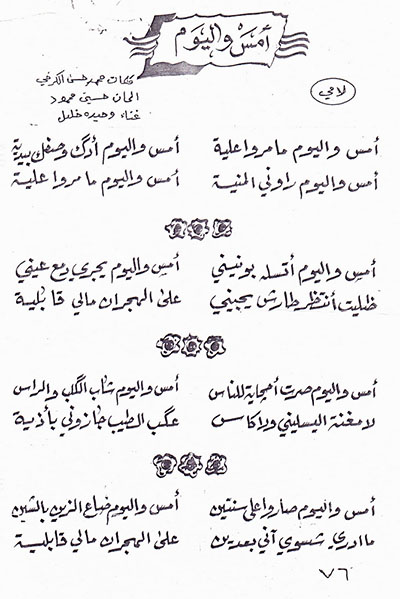 أمس واليوم
كلمات محمد حسن الكرخي
الحان حسين حمود
غناء وحيده خليل
لامي
أمس واليوم ما مروا علية أمس واليوم أدگ وصفك بيدية
أمس واليوم راوني المنية أمس واليوم ما مروا علية
أمس واليوم أتسله بونيني أمس واليوم يجري دمع عيني
ظليت أنتظر طارش يجيني على الهجران مالي قابلية
أمس واليوم صرت أحچاية للناس أمس واليوم شاب الگلب والراس
لا مغنة اليسليني ولا كاس عگب الطيب جازوني بأذية
أمس واليوم صاروا على سنتين أمس واليوم ضاع الزين بالشين
ما ادري شسوي آني بعدين على الهجران مالي قابلية
٧٦